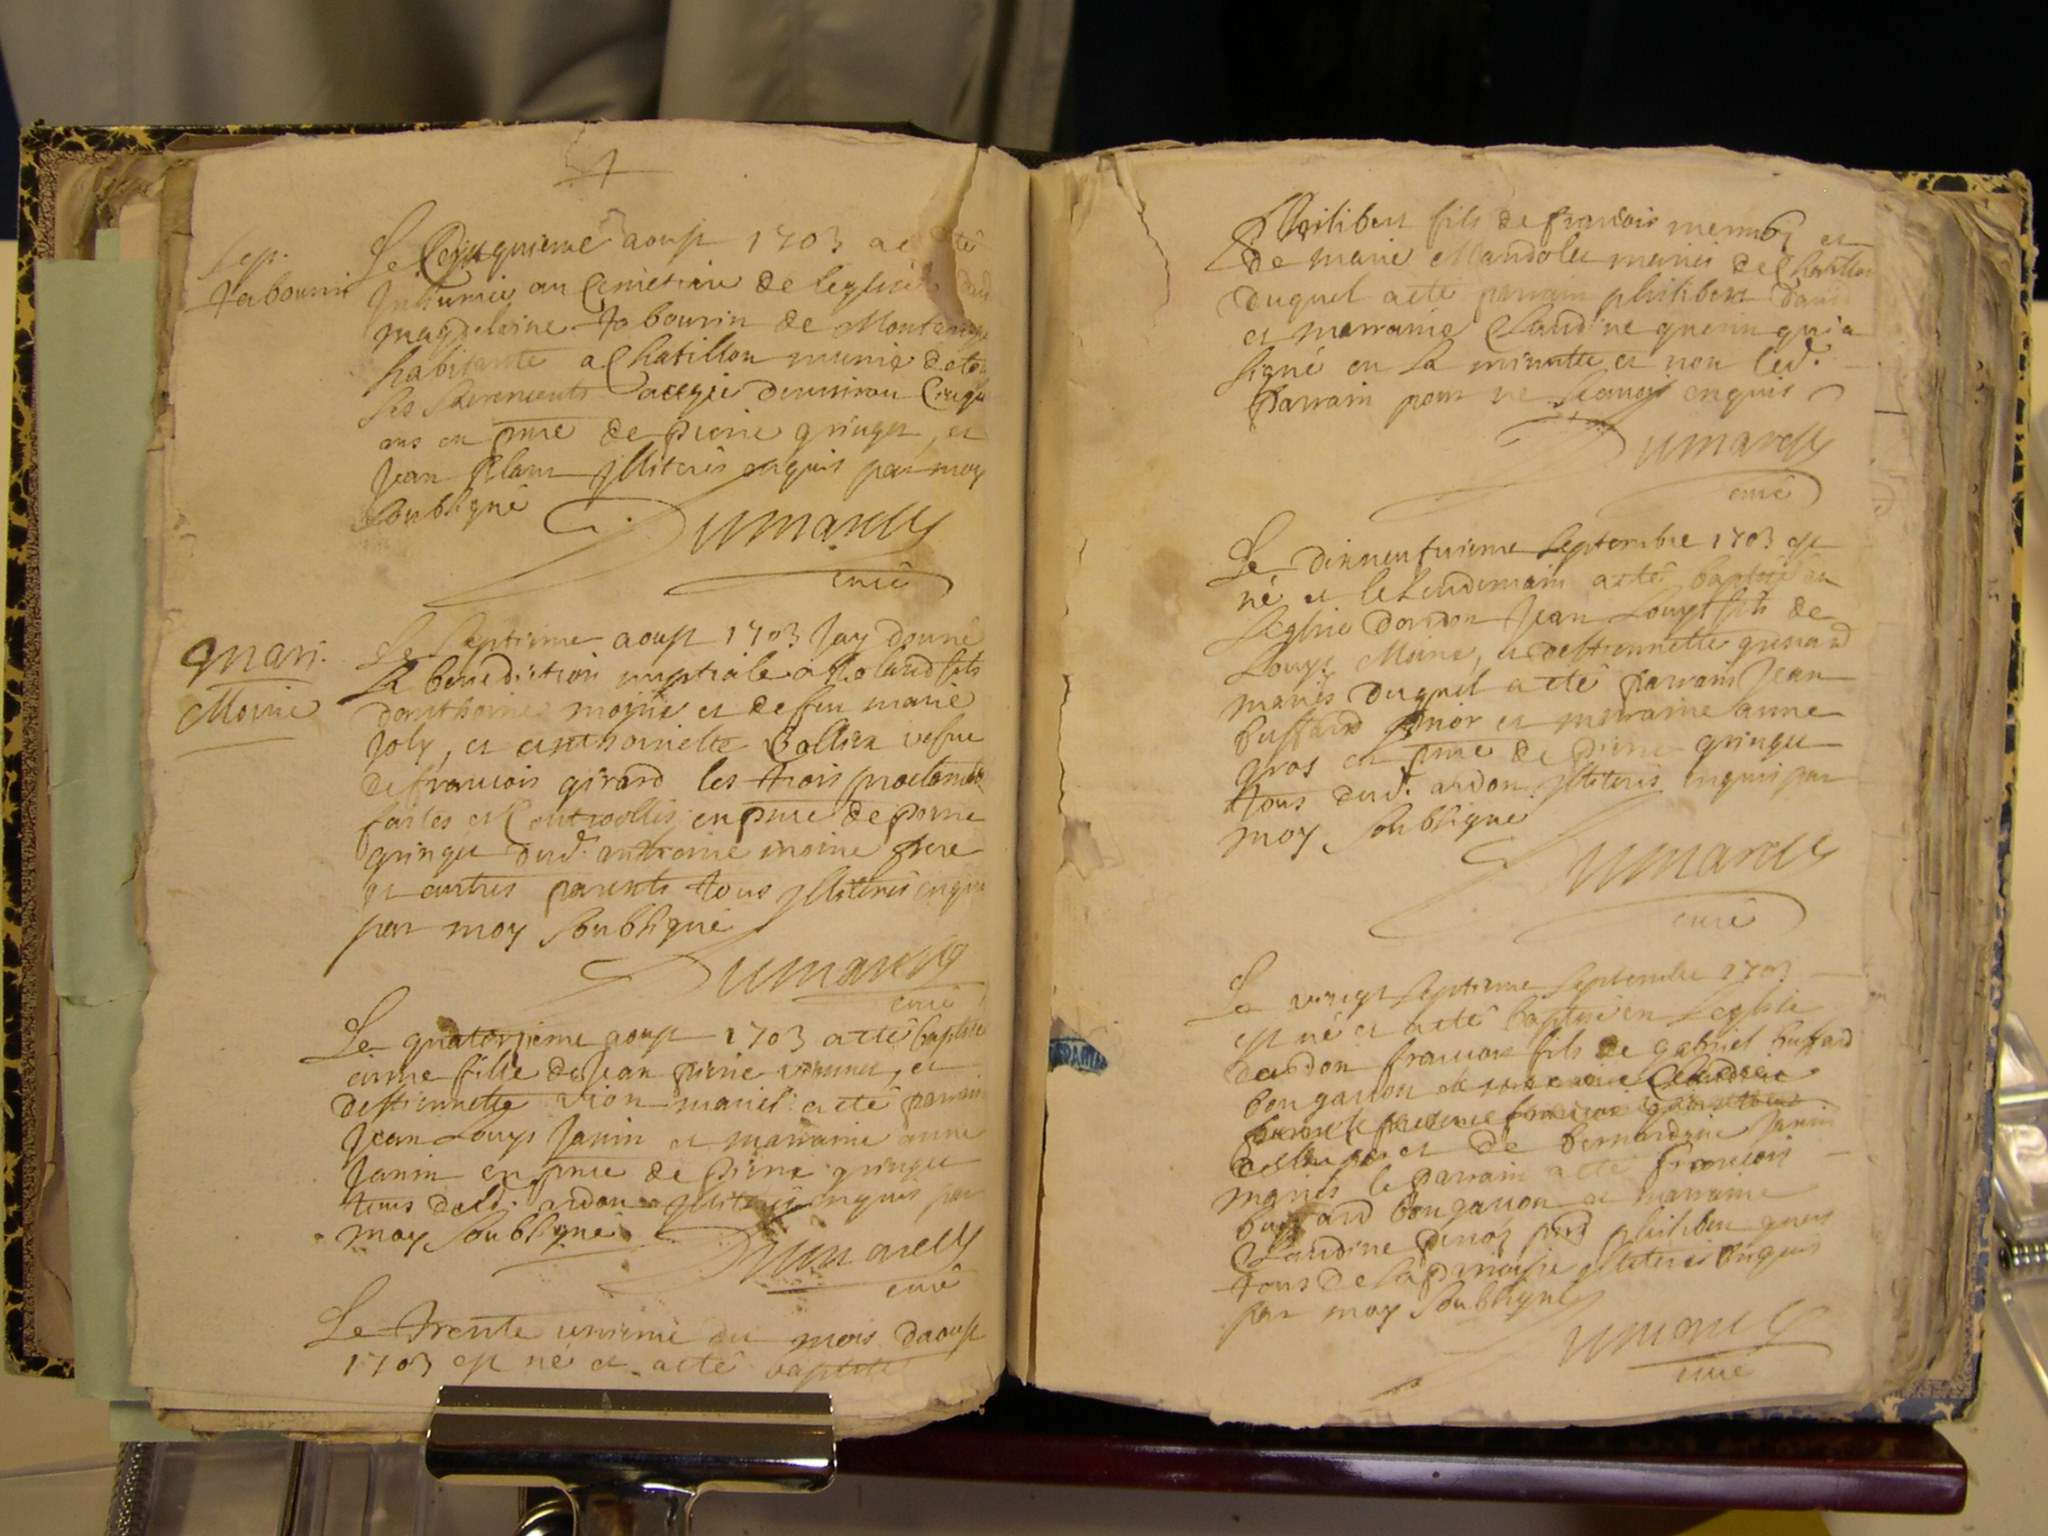 Sep.
Tabourin
Le Cinquieme aoust 1703 a esté
Inhumée au Cemetiere de leglise
magdeleine tabourin de
habitante a Chatillon munie de
ses Sacrements aagée denviron
ans en pnce de pierre gringet, et
Jean illiterés enquis par moy
soubsigné
Dumarest
curé
Mari.
Moine
Le septieme aoust 1703 Jay donné
La benediction nuptiale a Roland fils
danthoine moyne et de feu marie
Joly, et anthoinette vefue
de francois girard les trois proclama
faites et Controollés en pnce de pierre
gringet dud. anthoine moine frere
et autres parents tous illiterés enquis
par moy soubsigné
Dumarest
curé
Le quatorzieme aoust 1703 a eté baptisée
anne fille de Jean pierre et
destiennette vion mariés a eté parrain
Jean Louys Janin et marraine anne
Janin en pnce de pierre gringet
tous dud. ardon illiterés enquis par
moy soubsigné
Dumarest
curé
Le trente unieme du mois daoust
1703 est né et a eté baptisé
Philibert fils de francois et
de marie mariés de Chatillon
duquel a eté parrain philibert
et marraine Claudine guerin qui a
signé en la minutte et non led.
Parrain pour ne scavoir enquis
Dumarest
curé
Le dixneufvieme Septembre 1703 est
né et le Lendemain a eté baptisé en
Leglise dardon Jean Louys fils de
Louys Moine, et destiennette
mariés duquel a eté parrain Jean
buffard et marraine anne
gros en pnce de pierre gringet
tous dud. ardon illiterés enquis par
moy soubsigné
Dumarest
curé
Le vingt septieme Septembre 1703
est né et a eté baptisé en Leglise
dardon francois fils de gabriel buffard
bongarson
et de bernardine Janin
mariés le parrain a eté francois
buffard bongarson et marraine
Claudine philibert
tous de La paroisse illiterés enquis
par moy soubsigné
Dumarest
curé